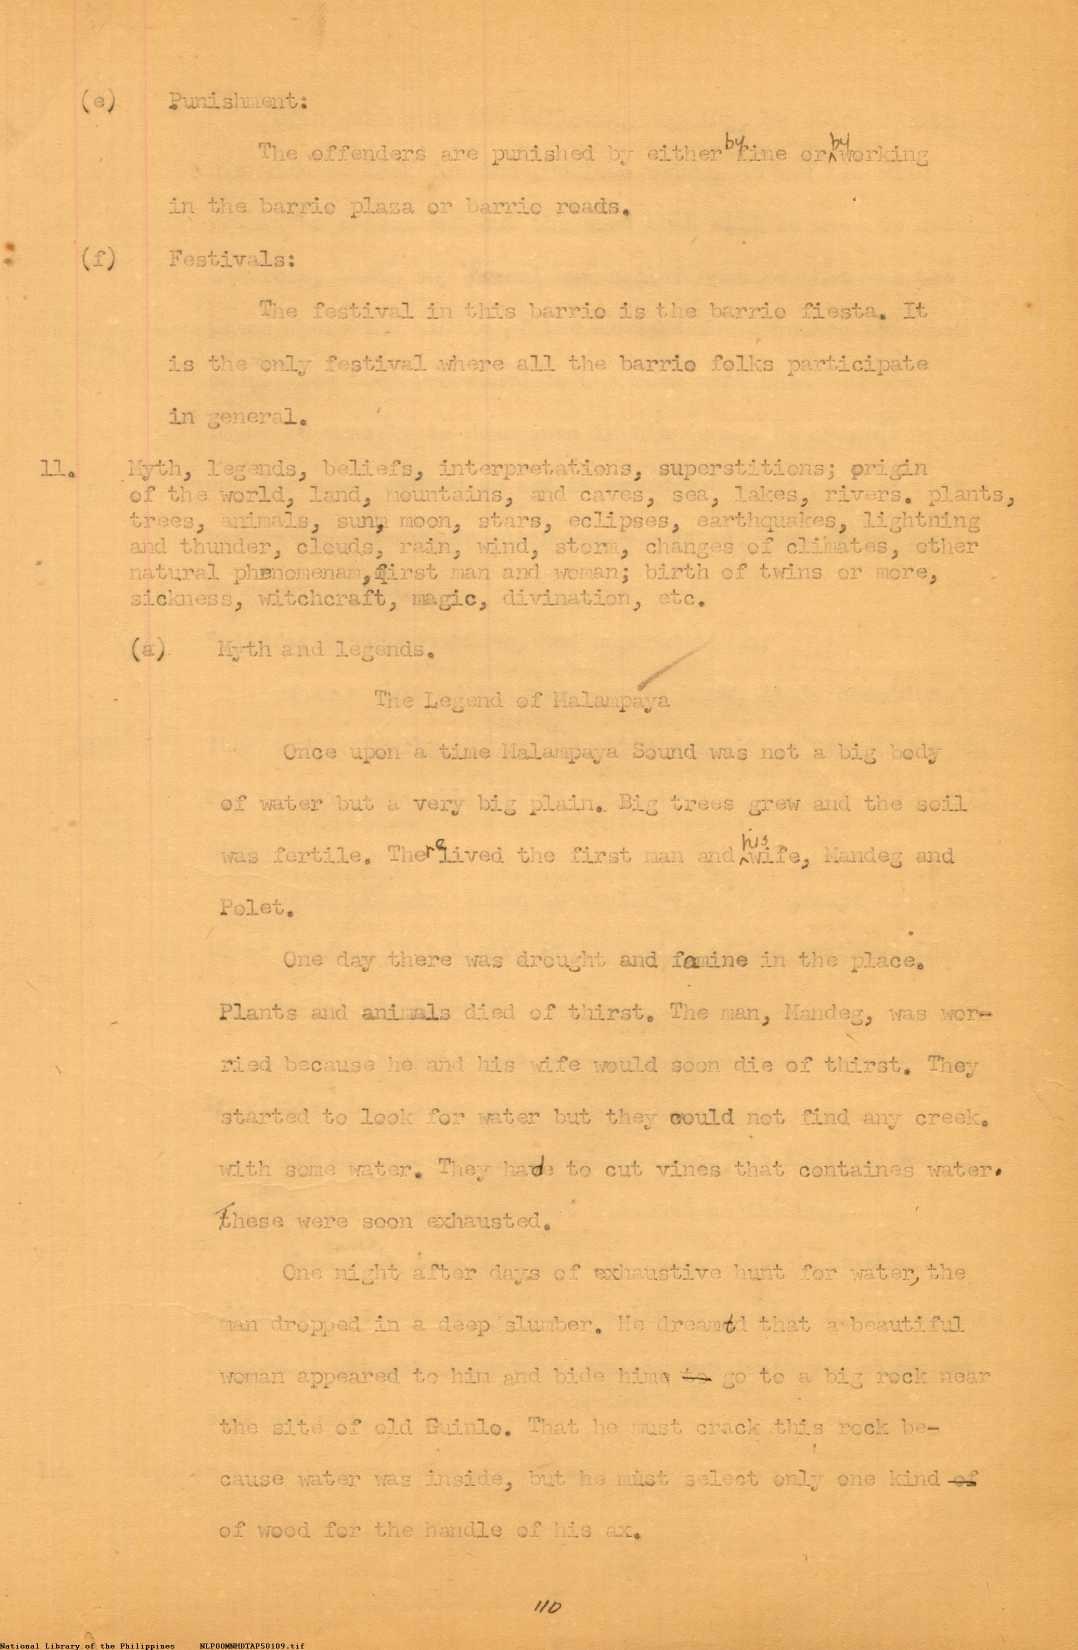 (e) Punishment:
The offenders are punished by either by fine or by working
in the barrio plaza or barrio roads.
(f) Festivals:
The festival in this barrio is the barrio fiesta. It
is the only festival where all the barrio folks participate
in general.
11. Myth, legends, beliefs, interpretations, superstitions; origin
of the world, land, mountains, and caves, sea, lakes, rivers. plants,
trees, animals, sun, moon, stars, eclipses, earthquakes, lightning
and thunder, clouds, rain, wind, storm, changes of climates, other
natural phenomenam, first man and woman; birth of twins or more,
sickness, witchcraft, magic, divination, etc.
(a) Myth and legends.
The Legend of Malampaya
Once upon a time Malampaya Sound was not a big body
of water but a very big plain. Big trees grew and the soil
was fertile. There lived the first man and his wife, Mandeg and
Polet.
One day there was drought and famine in the place.
Plants and animals died of thirst. The man, Mandeg, was wor-
ried because he and his wife would soon die of thirst. They
started to look for water but they could not find any creek.
with some water. They had to cut vines that containes water.
These were soon exhausted.
One night after days of exhaustive hunt for water, the
man dropped in a deep slumber. He dreamt that a beautiful
woman appeared to him and bide him to go to a big rock near
the site of old Guinlo. That he must crack this rock be-
cause water was inside, but he must select only one kind of
of wood for the handle of his ax.
110
National Library of the Philippines NLP00MNHDTAP50109.tif